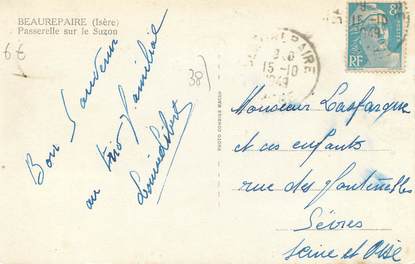 BEAUREPAIRE (Isère)
Passerelle sur le Suzon
6 €
38
Bon Souvenir
au trio familial
Louise
PHOTO COMBIER MACON
BEAUREPAIRE
15-10
1949
ISÈRE
RF
Monsieur Lasfargue
et ces enfants
rue des
Sèvres
Seine et Oise